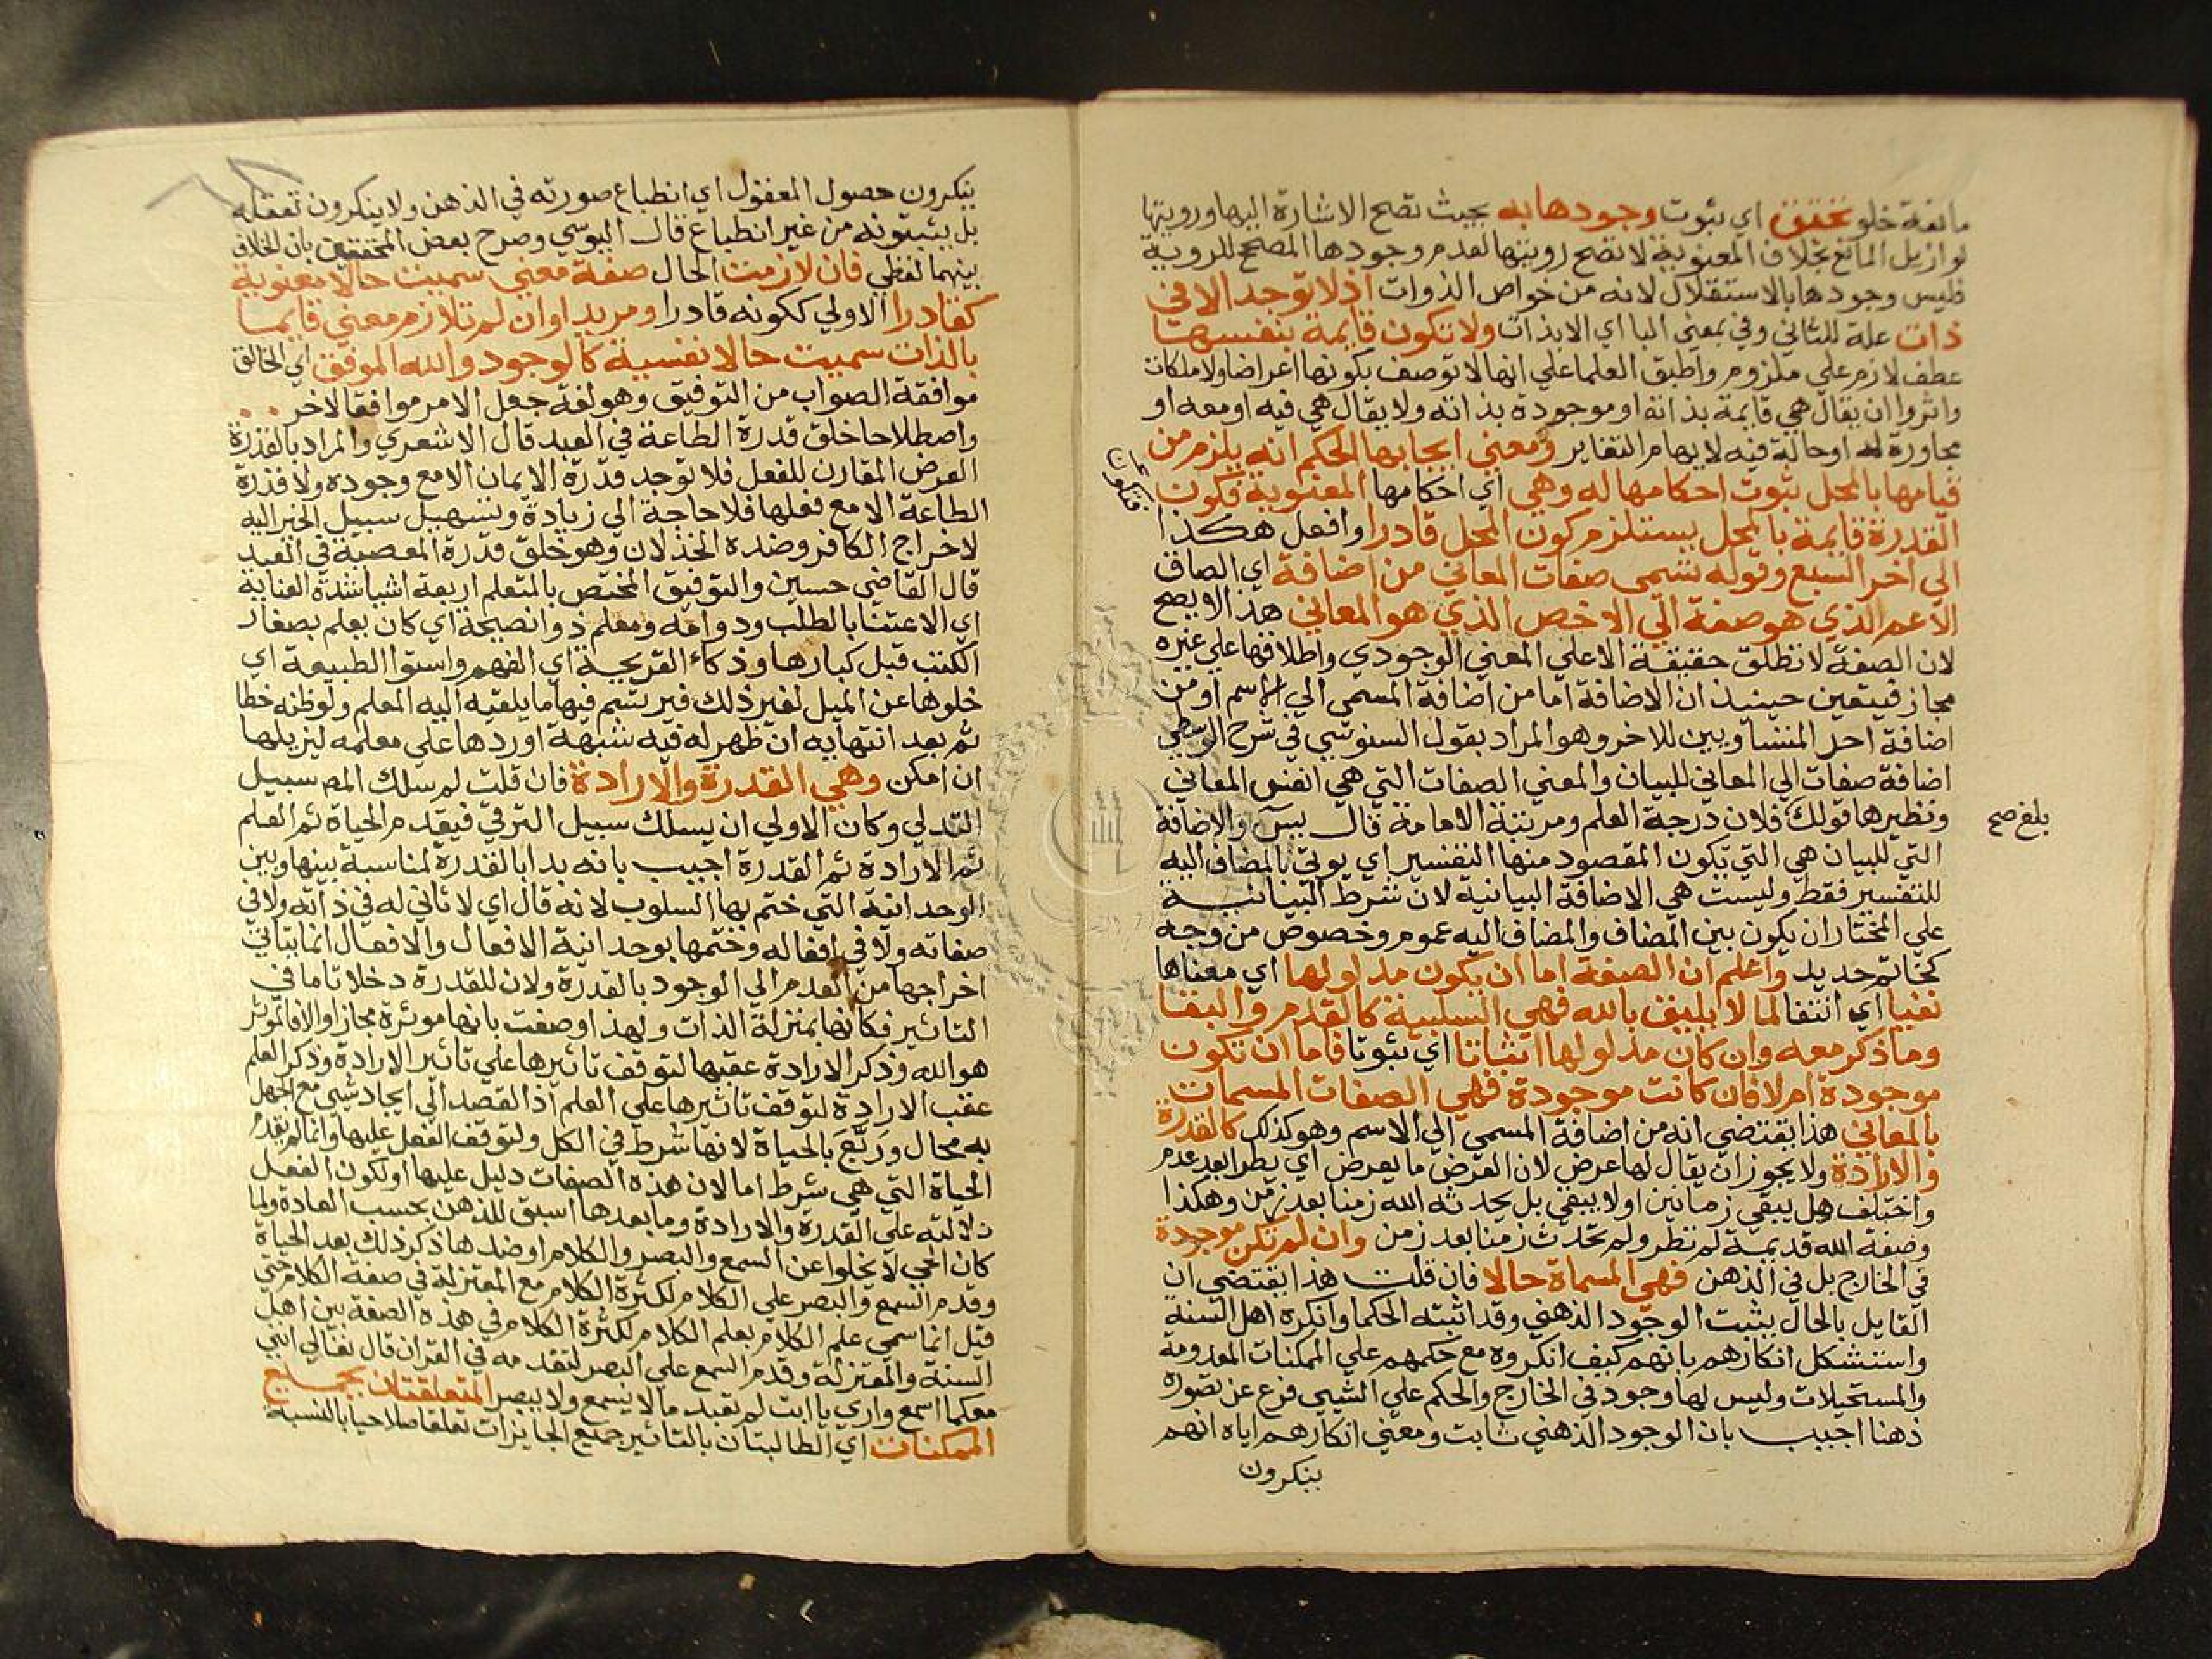 مانعة خلو تحقق اي ثبوت وجودها به بحيث تصح الاشارة اليها ورويتها
لو ازيل المانع بخلاف المعنوية لا تصح رويتها لعدم وجودها المصحح للروية
فليس وجودها بالاستقلال لانه من خواص الذوات اذ لا توجد الا في
ذات علة للثاني وفي بمعني البا اي الا بذات ولا تكون قايمة بنفسها
عطف لازم علي ملزوم واطبق العلما علي انها لا توصف بكونها اعراضا ولا ملكات
واثروا ان يقال هي قايمة بذاته او موجودة بذاته ولا يقال هي فيه او معه او
مجاورة له او حالة فيه لايهام التغاير ومعني ايجابها الحكم انه يلزم من
قيامها بالمحل ثبوت احكامها له وهي اي احكامها المعنوية فكون
القدرة قايمة بالمحل يستلزم كون المحل قادرا وافعل هكذا
الي اخر السبع وقوله تسمي صفات المعاني من اضافة اي الصاق
الاعم الذي هو صفة الي الاخص الذي هو المعاني هذا لا يصح
لان الصفة لا تطلق حقيقة الا علي المعني الوجودي واطلاقها علي غيره
مجاز فيتعين حينيذ ان الاضافة اما من اضافة المسمي الي الاسم او من
اضافة احد المتساويين للاخر وهو المراد بقول السنوسي في شرح الوسطي
اضافة صفات الي المعاني للبيان والمعني الصفات التي هي انفس المعاني
ونظيرها قولك فلان درجة العلم ومرتبة الامامة قال يس والاضافة
بلغ صح
التي للبيان هي التي يكون المقصود منها التفسير اي يوتي بالمضاف اليه
للتفسير فقط وليست هي الاضافة البيانية لان شرط البيانية
علي المختار ان يكون بين المضاف والمضاف اليه عموم وخصوص من وجه
كخاتم حديد واعلم ان الصفة اما ان يكون مدلولها اي معناها
نفيا اي انتفا لما لا يليق بالله فهي السلبية كالقدم والبقا
وما ذكر معه وان كان مدلولها اثباتا اي ثبوتا فاما ان تكون
موجودة ام لا فان كانت موجودة فهي الصفات المسمات
بالمعاني هذا يقتضي انه من اضافة المسمي الي الاسم وهو كذلك كالقدرة
والارادة ولا يجوز ان يقال لها عرض لان العرض ما يعرض اي يطرا بعد عدم
واختلف هل يبقي زمانين او لا يبقي بل يحدثه الله زمنا بعد زمن وهكذا
وصفة الله قديمة لم تطر ولم تحدث زمنا بعد زمن وان لم تكن موجودة
في الخارج بل في الذهن فهي المسماة حالا فان قلت هذا يقتضي ان
القايل بالحال يثبت الوجود الذهني وقد اثبته الحكما وانكره اهل السنة
واستشكل انكارهم بانهم كيف انكروه مع حكمهم علي الممكنات المعدومة
والمستحيلات وليس لها وجود في الخارج والحكم علي الشيي فرع عن تصوره
ذهنا اجيب بان الوجود الذهني ثابت ومعني انكارهم اياه انهم
ينكرون
ينكرون حصول المعقول اي انطباع صورته في الذهن ولا ينكرون تعقله
بل يثبتونه من غير انطباع قال اليوسي وصرح بعض المحققين بان الخلاف
بينهما لفظي فان لازمت الحال صفة معني سميت حالا معنوية
كقادرا الاولي ككونه قادرا ومريدا وان لم تلازم معني قايما
بالذات سميت حالا نفسية كالوجود والله الموفق اي الخالق
موافقة الصواب من التوفيق وهو لغة جعل الامر موافقا لاخر
واصطلاحا خلق قدرة الطاعة في العبد قال الاشعري والمراد بالقدرة
العرض المقارن للفعل فلا توجد قدرة الايمان الا مع وجوده ولا قدرة
الطاعة الا مع فعلها فلا حاجة الي زيادة وتسهيل سبيل الخير اليه
لاخراج الكافر وضده الخذلان وهو خلق قدرة المعصية في العبد
قال القاضي حسين والتوفيق المختص بالمتعلم اربعة اشيا شدة العناية
اي الاعتنا بالطلب ودوامه ومعلم ذو انصيحة اي كان يعلم بصغار
الكتب قبل كبارها وذكاء القريحة اي الفهم واستوا الطبيعة اي
خلوها عن الميل لغير ذلك فيرتسم فيها ما يلقيه اليه المعلم ولو ظنه خطا
ثم بعد انتهايه ان ظهر له فيه شبهة اوردها علي معلمه ليزيلها
ان امكن وهي القدرة والارادة فان قلت لم سلك المص سبيل
التدلي وكان الاولي ان يسلك سبيل الترقي فيقدم الحياة ثم العلم
ثم الارادة ثم القدرة اجيب بانه بدا بالقدرة لمناسبة بينها وبين
الوحدانية التي ختم بها السلوب لانه قال اي لا ثاني له في ذاته ولا في
صفاته ولا في افعاله وختمها بوحدانية الافعال والافعال انما يتاتي
اخراجها من العدم الي الوجود بالقدرة ولان للقدرة دخلا تاما في
التاثير فكانها بمنزلة الذات ولهذا وصفت بانها موثرة مجازا والا فالموثر
هو الله وذكر الارادة عقبها لتوقف تاثيرها علي تاثير الارادة وذكر العلم
عقب الارادة لتوقف تاثيرها علي العلم اذ القصد الي ايجاد شيي مع الجهل
به محال وربع بالحياة لانها شرط في الكل ولتوقف الفعل عليها وانما لم يقدم
الحياة التي هي شرط اما لان هذه الصفات دليل عليها او لكون الفعل
دلالته علي القدرة والارادة وما بعدها اسبق للذهن بحسب العادة ولما
كان الحي لا يخلوا عن السمع والبصر والكلام او ضدها ذكر ذلك بعد الحياة
وقدم السمع والبصر علي الكلام لكثرة الكلام مع المعتزلة في صفة الكلام حتي
قيل انما سمي علم الكلام بعلم الكلام لكثرة الكلام في هذه الصفة بين اهل
السنة والمعتزلة وقدم السمع علي البصر لتقدمه في القران قال تعالي انني
معكما اسمع واري يا ابت لم تعبد ما لا يسمع ولا يبصر المتعلقتان بجميع
الممكنات اي الطالبتان بالتاثير جميع الجايزات تعلقا صلاحيا بالنسبة